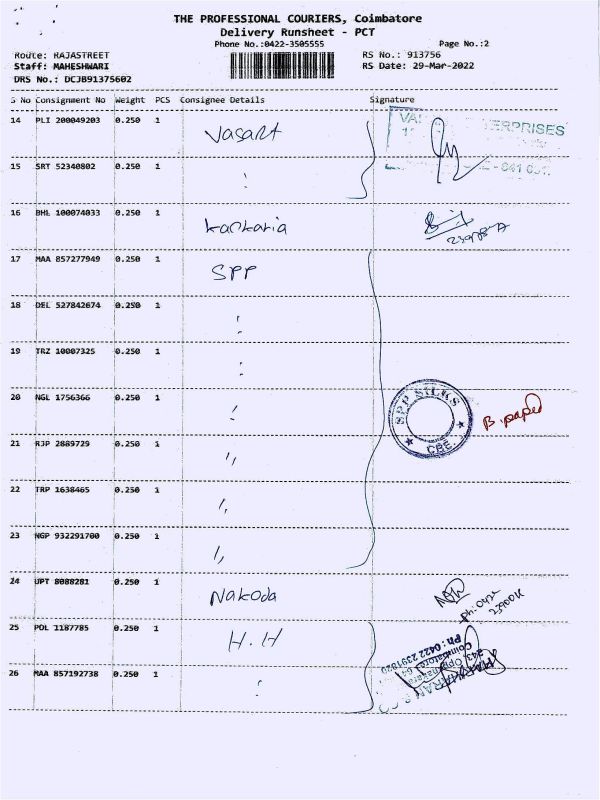 THE PROFESSIONAL COURIERS, Coimbatore
Delivery Runsheet - PCT
Phone No.:0422-3505555
Page No.:2
Route: RAJASTREET
RS No.: 913756
Staff: MAHESHWARI
RS Date: 29-Mar-2022
DRS No.: DCJB91375602
S No Consignment No Weight PCS Consignee Details Signature
14 PLI 200049203 0.250 1 Vasant
ERPRISES
15 SRT 52340802 0.250 1 :
16 BHL 100074033 0.250 1 kankaria
17 MAA 857277949 0.250 1 SPP
18 DEL 527842674 0.250 1 :
19 TRZ 10007325 0.250 1 :
20 NGL 1756366 0.250 1 :
SPP SILKS
CBE.
21 RJP 2889729 0.250 1 ,,
22 TRP 1638465 0.250 1 ,,
23 NGP 932291700 0.250 1 ,,
24 UPT 8088281 0.250 1 Nakoda
25 POL 1187785 0.250 1 H.H
Ph: 0422 2391820
26 MAA 857192738 0.250 1 :